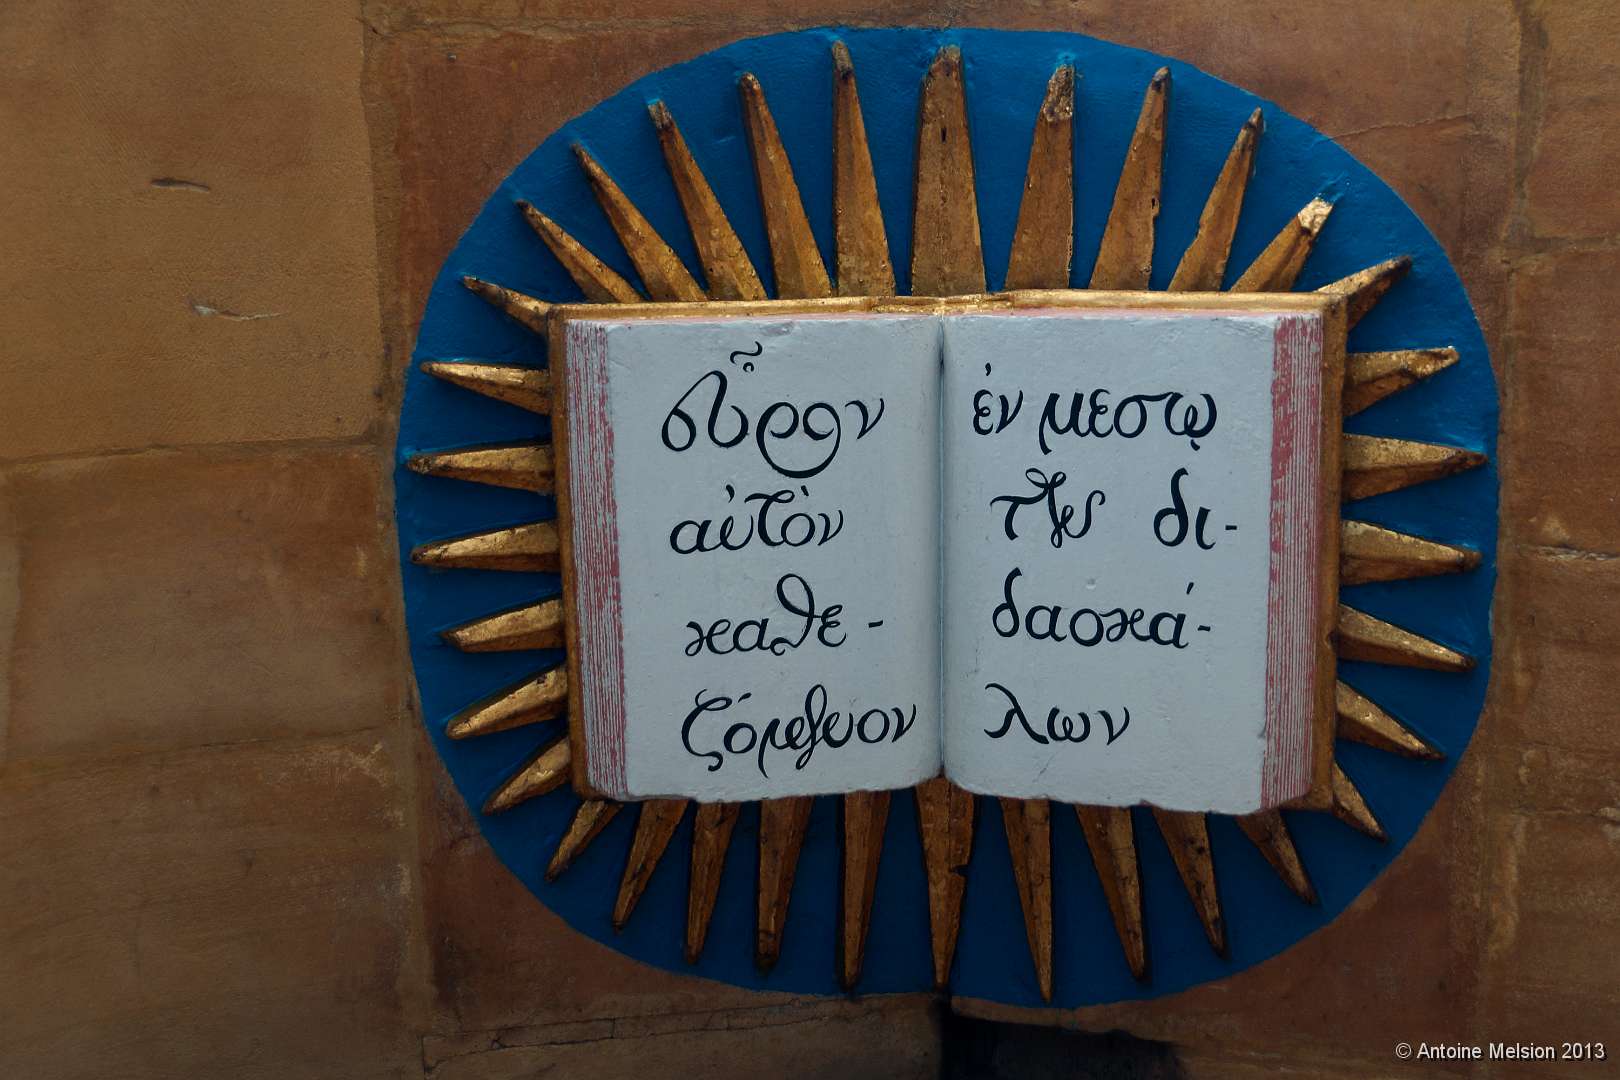 εὗρον
αὐτὸν
καθε-
ζόμενον
ἐν μεσῳ
τῶν δι-
δασκά-
λων
© Antoine Melsion 2013